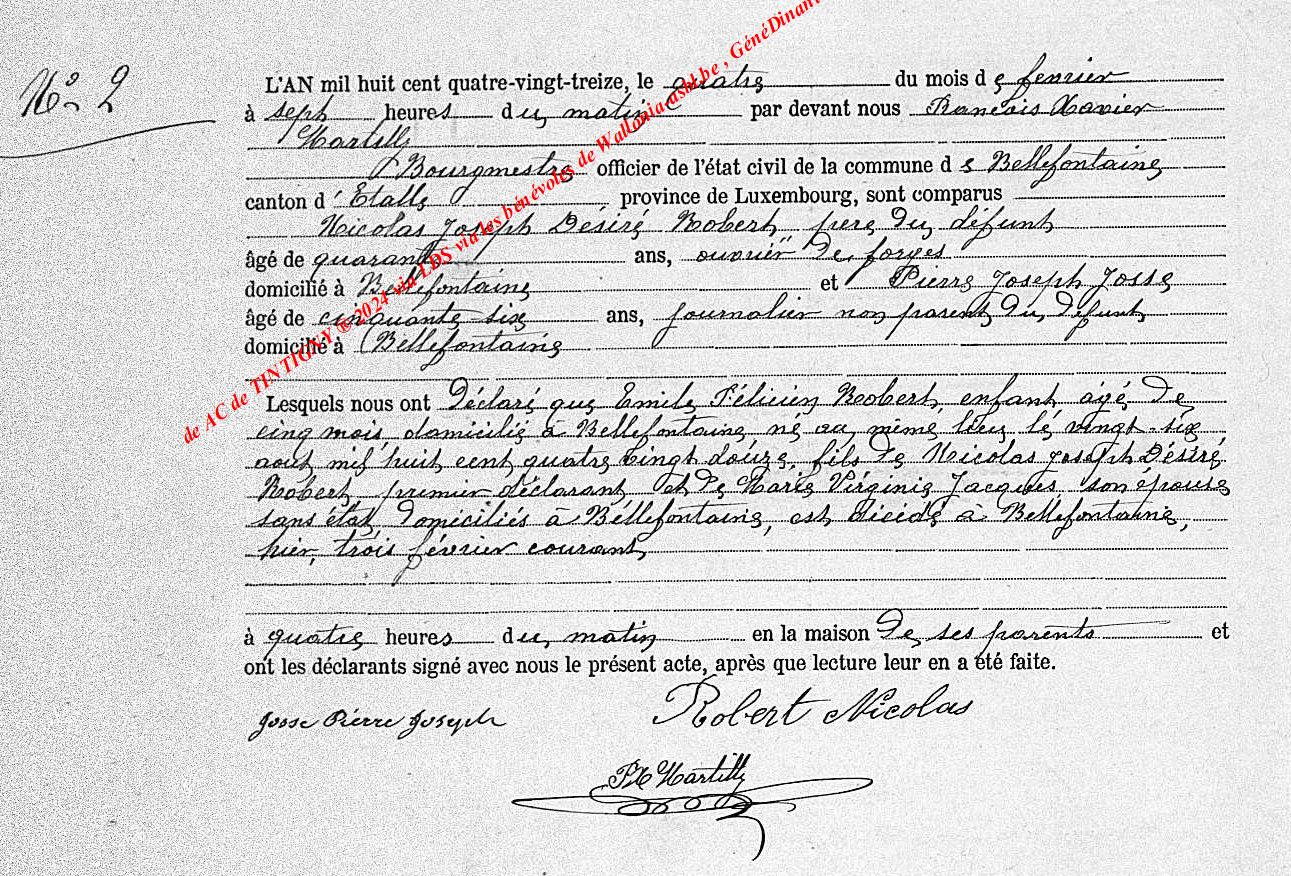 N° 2
L'AN mil huit cent quatre-vingt-treize, le quatre du mois de fevrier
à sept heures du matin par devant nous François Xavier
Hartilly
Bourgmestre officier de l'état civil de la commune de Bellefontaine
canton d'Etalle, province de Luxembourg, sont comparus
Nicolas Joseph Désiré Robert pere du défunt
âgé de quarante ans, ouvrier de forges
domicilié à Bellefontaine et Pierre Joseph Josse
âgé de cinquante six ans, journalier non parent du défunt
domicilié à Bellefontaine
Lesquels nous ont Déclaré que Emile Félicien Robert, enfant âgé de
cinq mois, domicilié à Bellefontaine, né au même lieu le vingt-six
août mil huit cent quatre vingt douze, fils de Nicolas Joseph Désiré
Robert, premier déclarant et de Marie Virginie Jacques, son épouse
sans état, domiciliés à Bellefontaine, est décédé à Bellefontaine,
hier, trois février courant
à quatre heures du matin en la maison de ses parents et
ont les déclarants signé avec nous le présent acte, après que lecture leur en a été faite.
Josse Pierre Joseph Robert Nicolas
FX Hartilly
de AC de TINTIGNY © 2024 via LDS via les bénévoles de Wallonia-asbl.be, GénéDinant